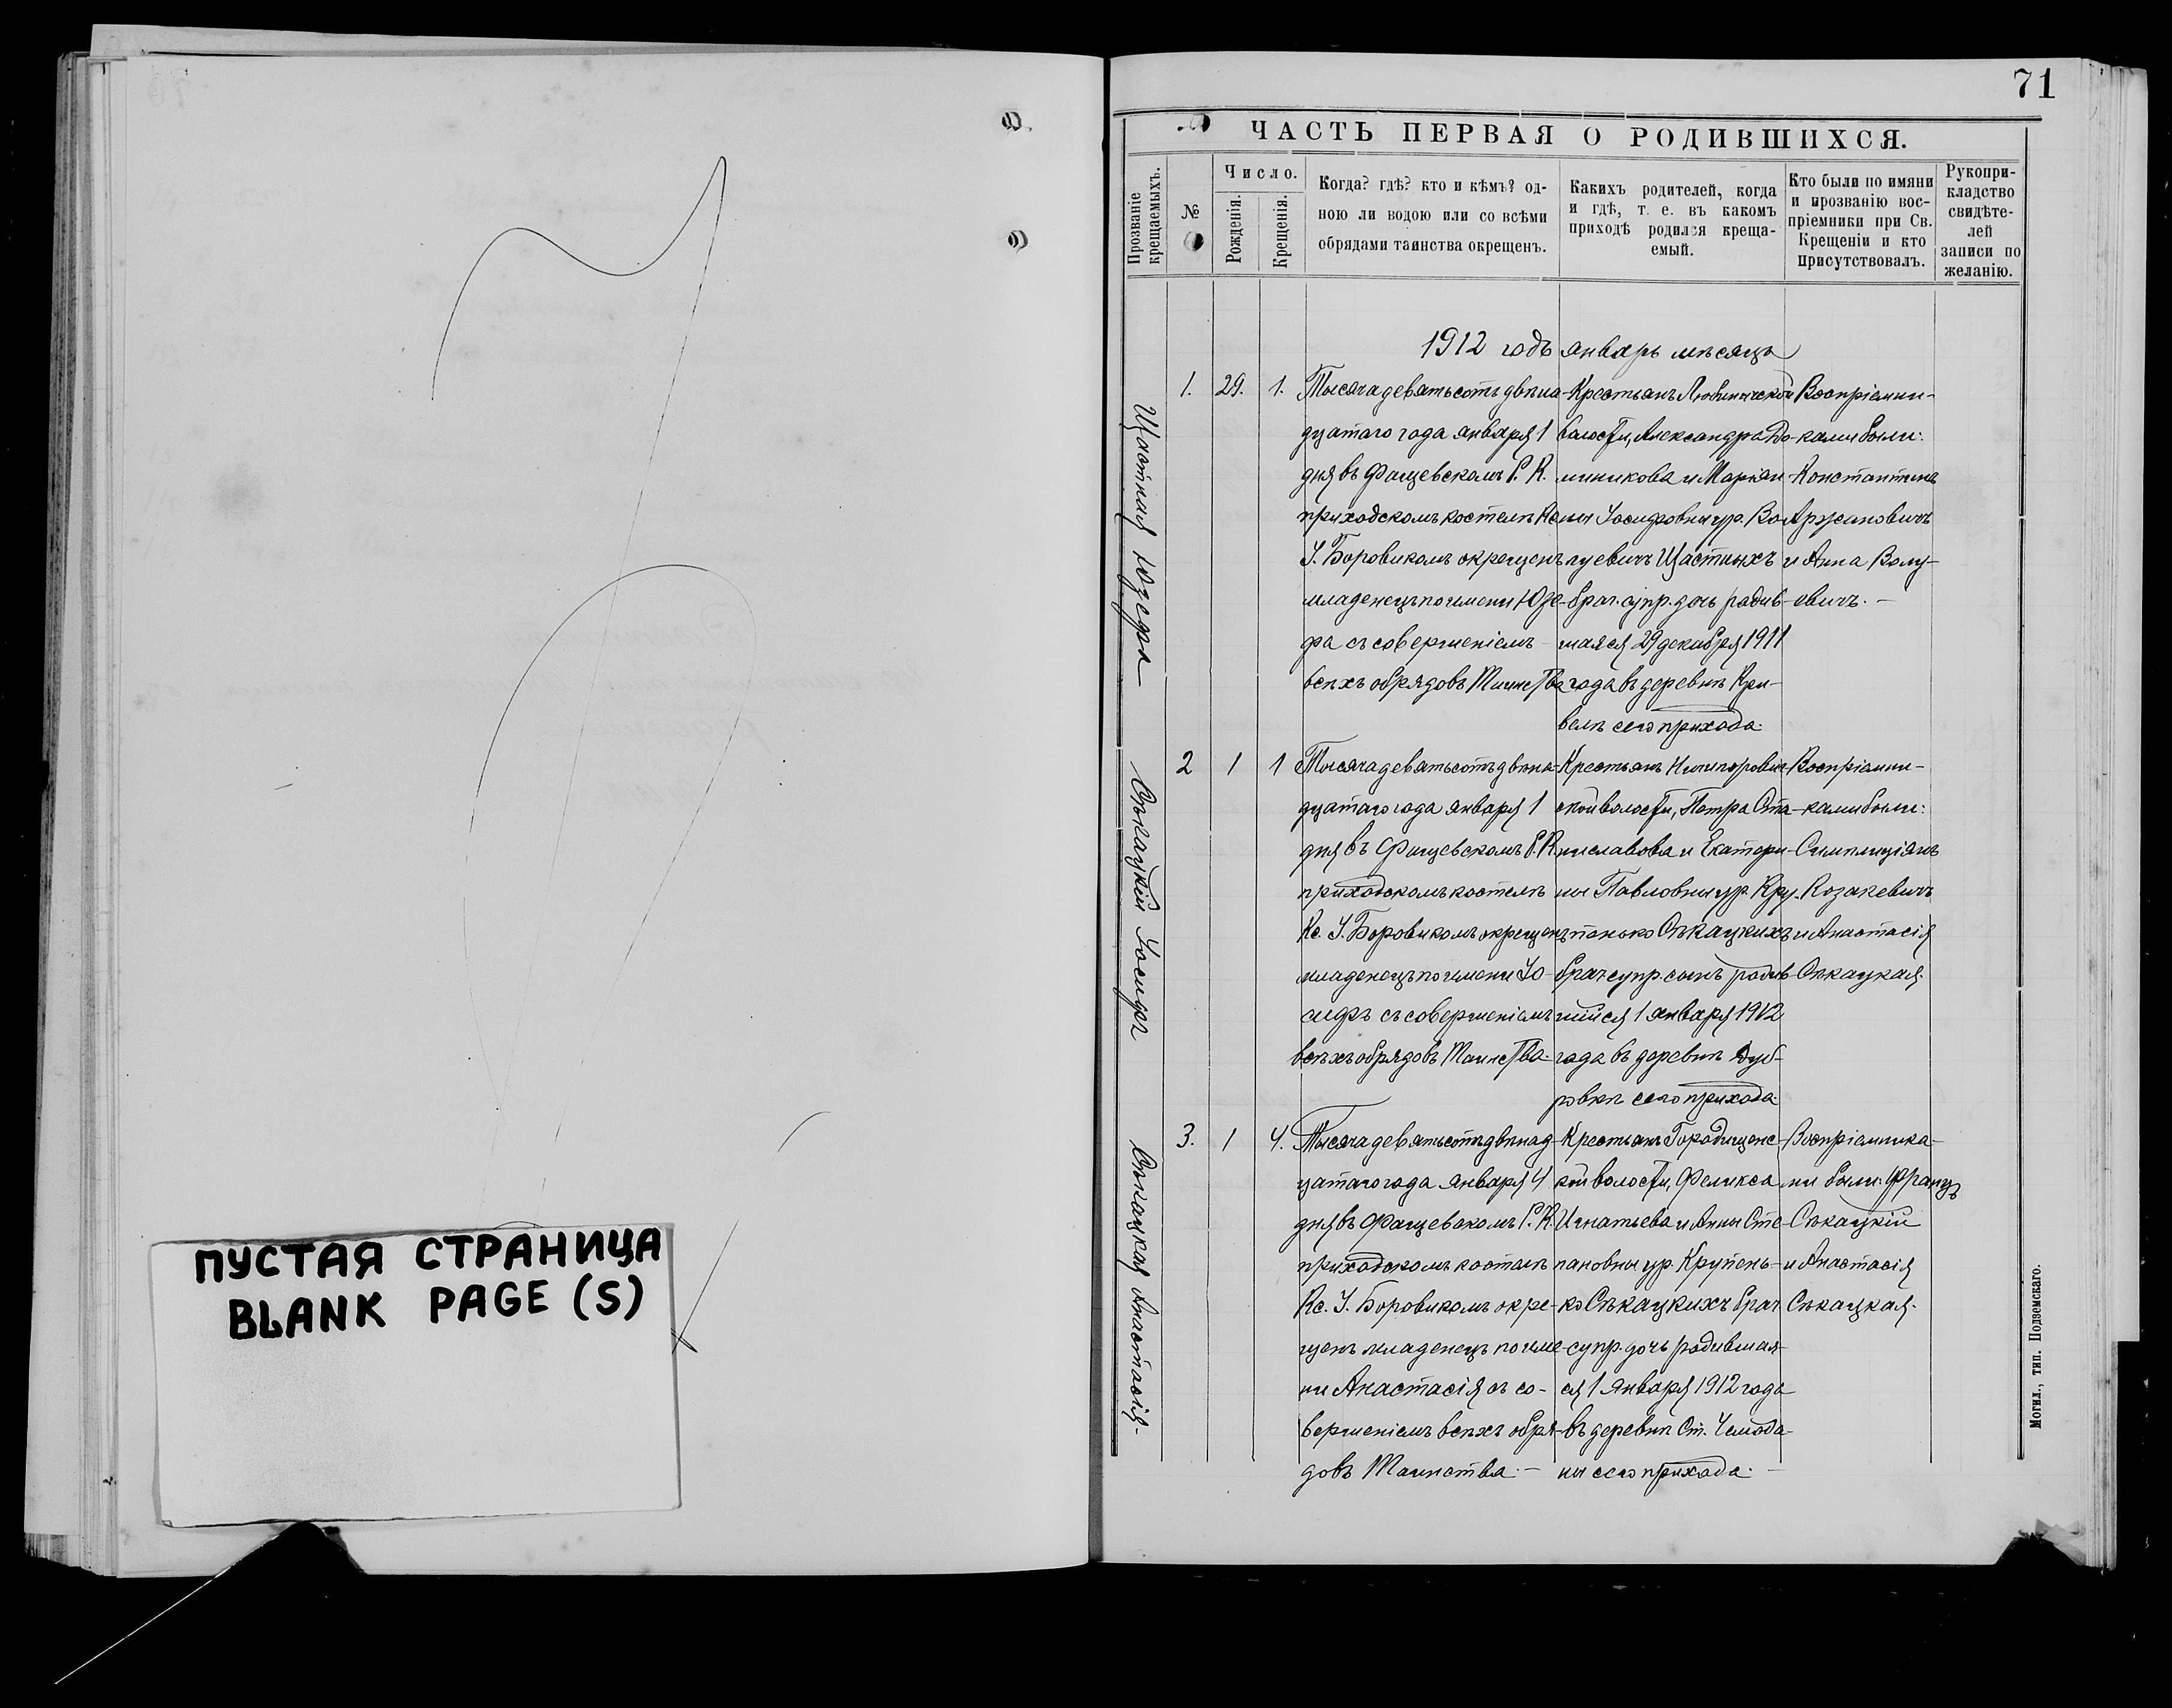 71
ЧАСТЬ ПЕРВАЯ О РОДИВШИХСЯ.
Прозваніе крещаемыхъ.
№
Число.
Рожденія.
Крещенія.
Когда? гдѣ? кто и кѣмъ? од-
ною ли водою или со всѣми
обрядами таинства окрещенъ.
Какихъ родителей, когда
и гдѣ, т. е. въ какомъ
приходѣ родился креща-
емый.
Кто были по имяни
и прозванію вос-
пріемники при Св.
Крещеніи и кто
присутствовалъ.
Рукопри-
кладство
свидѣте-
лей
записи по
желанію.
1912 годъ январь мѣсяцъ
Щастная Юзефа
1.
29.
1.
Тысяча девятьсотъ двѣна-
дцатаго года января 1
дня въ Фащевскомъ Р. К.
приходскомъ костелѣ Кс
І. Боровикомъ окрещенъ
младенецъ по имени Юзе-
фа съ совершеніемъ
всѣхъ обрядовъ Таинства
Крестьянъ Любиничской
волости, Александра До-
миникова и Маріан-
ны Іосифовны ур. Во-
луевичъ Щастныхъ
брач. супр. дочь родив-
шаяся 29 декабря 1911
года въ деревнѣ Кри-
велѣ сего прихода.
Воспріемни-
ками были:
Константинъ
Аржановичъ
и Анна Волу-
евичъ. —
Сѣкацкій Іосифъ
2
1
1
Тысяча девятьсотъ двѣна-
дцатаго года января 1
дня въ Фащевскомъ Р. К.
приходскомъ костелѣ
Кс. І. Боровикомъ окрещенъ
младенецъ по имени Іо-
сифъ съ совершеніемъ
всѣхъ обрядовъ Таинства.
Крестьянъ Ничипорович-
ской волости, Петра Ста-
ниславова и Екатери-
ны Павловны ур. Кру-
пенько Сѣкацкихъ
брач супр. сынъ родив
шійся 1 января 1912
года въ деревнѣ Дуб-
ровкѣ сего прихода.
Воспріемни-
ками были:
Симплиціянъ
Козакевичъ
и Анастасія
Сѣкацкая.
Сѣкацкая Анастасія-
3.
1
4.
Тысяча девятьсотъ двѣнад-
цатаго года января 4
дня въ Фащевскомъ Р. К.
приходскомъ костелѣ
Кс. І. Боровикомъ окре-
щенъ младенецъ по име-
ни Анастасія съ со-
вершеніемъ всѣхъ обря-
довъ Таинства. —
Крестьянъ Городищенс-
кой волости, Феликса
Игнатьева и Анны Сте-
пановны ур. Крупень-
ко Сѣкацкихъ брач
супр. дочь родившая-
ся 1 января 1912 года
въ деревнѣ Ст. Чемода-
ны сего прихода. —
Воспріемника-
ми были: Францъ
Сѣкацкій
и Анастасія
Сѣкацкая.
Могил., тип. Подземскаго.
ПУСТАЯ СТРАНИЦА
BLANK PAGE (S)